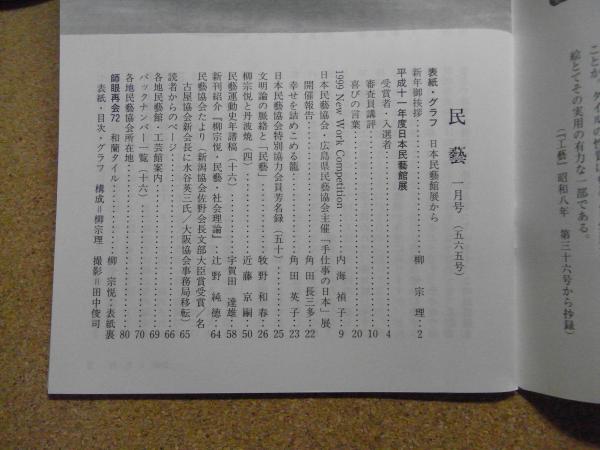 ことか、タイルの性質は
絵とてその実用の有力な一部である。
(「工藝」 昭和八年 第三十六号から抄録)
民藝 一月号 (五六五号)
表紙・グラフ 日本民藝館展から
新年御挨拶……柳 宗理…2
平成十一年度日本民藝館展
受賞者・入選者……4
審査員講評……10
喜びの言葉……20
1999 New Work Competition……内海禎子…9
日本民藝協会・広島県民藝協会主催「手仕事の日本」展
開催報告……角田長三多…22
幸せを詰めこめる籠……角田英子…23
日本民藝協会特別協力会員芳名録(五十)……25
文明論の脈絡と「民藝」……牧野和春…26
柳宗悦と丹波焼(四)……近藤京嗣…50
民藝運動史年譜稿(十六)……宇賀田達雄…58
新刊紹介『柳宗悦・民藝・社会理論』……辻野純徳…64
民藝協会たより(新潟協会佐野会長文部大臣賞受賞/名
古屋協会新会長に水谷英三氏/大阪協会事務局移転)…65
読者からのページ……66
各地民藝館・工芸館案内……69
バックナンバー一覧(十六)……70
各地民藝協会所在地……80
師眼再会72 和蘭タイル……柳 宗悦・表紙裏
表紙・目次・グラフ 構成=柳宗理 撮影=田中俊司